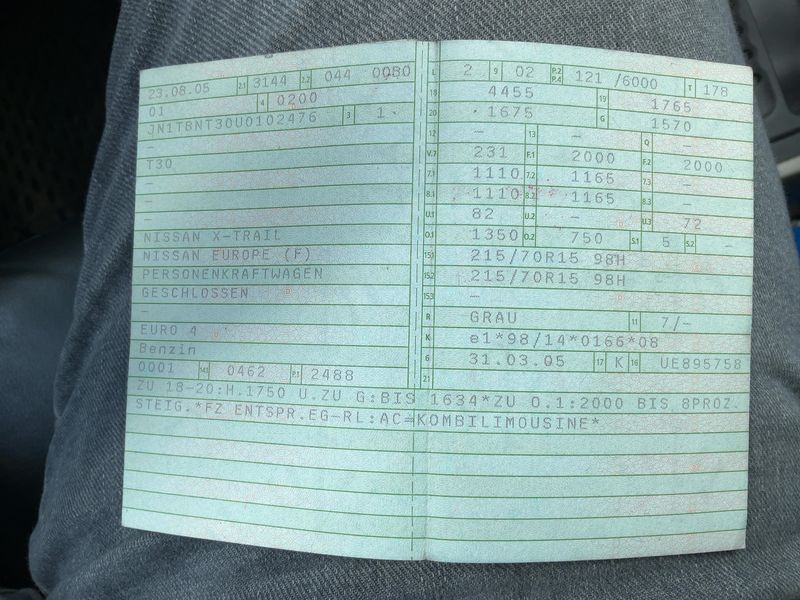 23.08.05 2.1 3144 2.2 044 0080
01 4 0200
JN1TBNT30U0102476 3 1
–
T30
–
–
–
NISSAN X-TRAIL
NISSAN EUROPE (F)
PERSONENKRAFTWAGEN
GESCHLOSSEN
–
EURO 4
Benzin
0001 14.1 0462 P.1 2488
L 2 9 02 P.2 P.4 121 /6000 T 178
18 4455 19 1765
20 1675 G 1570
12 – 13 – Q –
V.7 231 F.1 2000 F.2 2000
7.1 1110 7.2 1165 7.3 –
8.1 1110 8.2 1165 8.3 –
U.1 82 U.2 – U.3 72
O.1 1350 O.2 750 S.1 5 S.2 –
15.1 215/70R15 98H
15.2 215/70R15 98H
15.3 –
R GRAU 11 7/–
K e1*98/14*0166*08
6 31.03.05 17 K 16 UE895758
21
ZU 18-20:H.1750 U.ZU G:BIS 1634*ZU O.1:2000 BIS 8PROZ.
STEIG.*FZ ENTSPR.EG-RL:AC=KOMBILIMOUSINE*